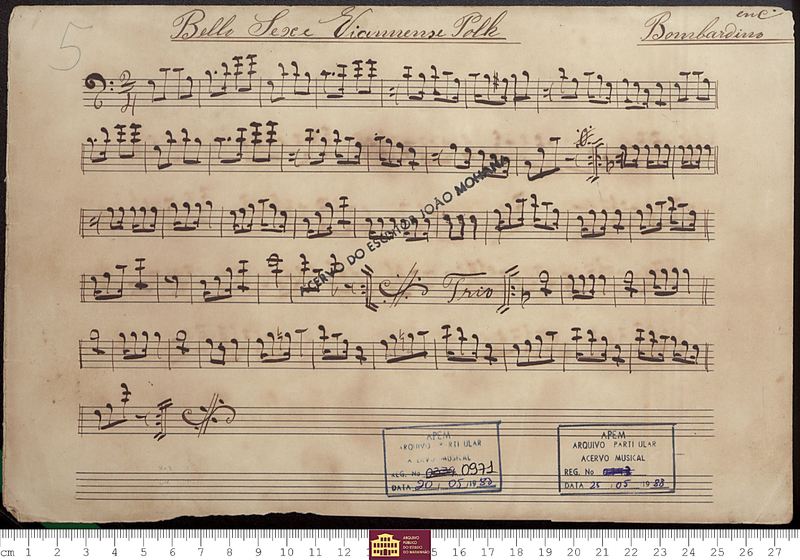 5
Bello Sexe Viannense Polk
enc.
Bombardino
2
4
6
ACERVO DO ESCRITOR JOÃO MOHANA
Trio
APEM
ARQUIVO PARTICULAR
ACERVO MUSICAL
REG. No 0971
DATA 20 / 05 / 1988
APEM
ARQUIVO PARTI ULAR
ACERVO MUSICAL
REG. No
DATA 25 / 05 / 1988
cm 1 2 3 4 5 6 7 8 9 10 11 12 15 16 17 18 19 20 21 22 23 24 25 26 27
ARQUIVO
PÚBLICO
DO ESTADO
DO MARANHÃO